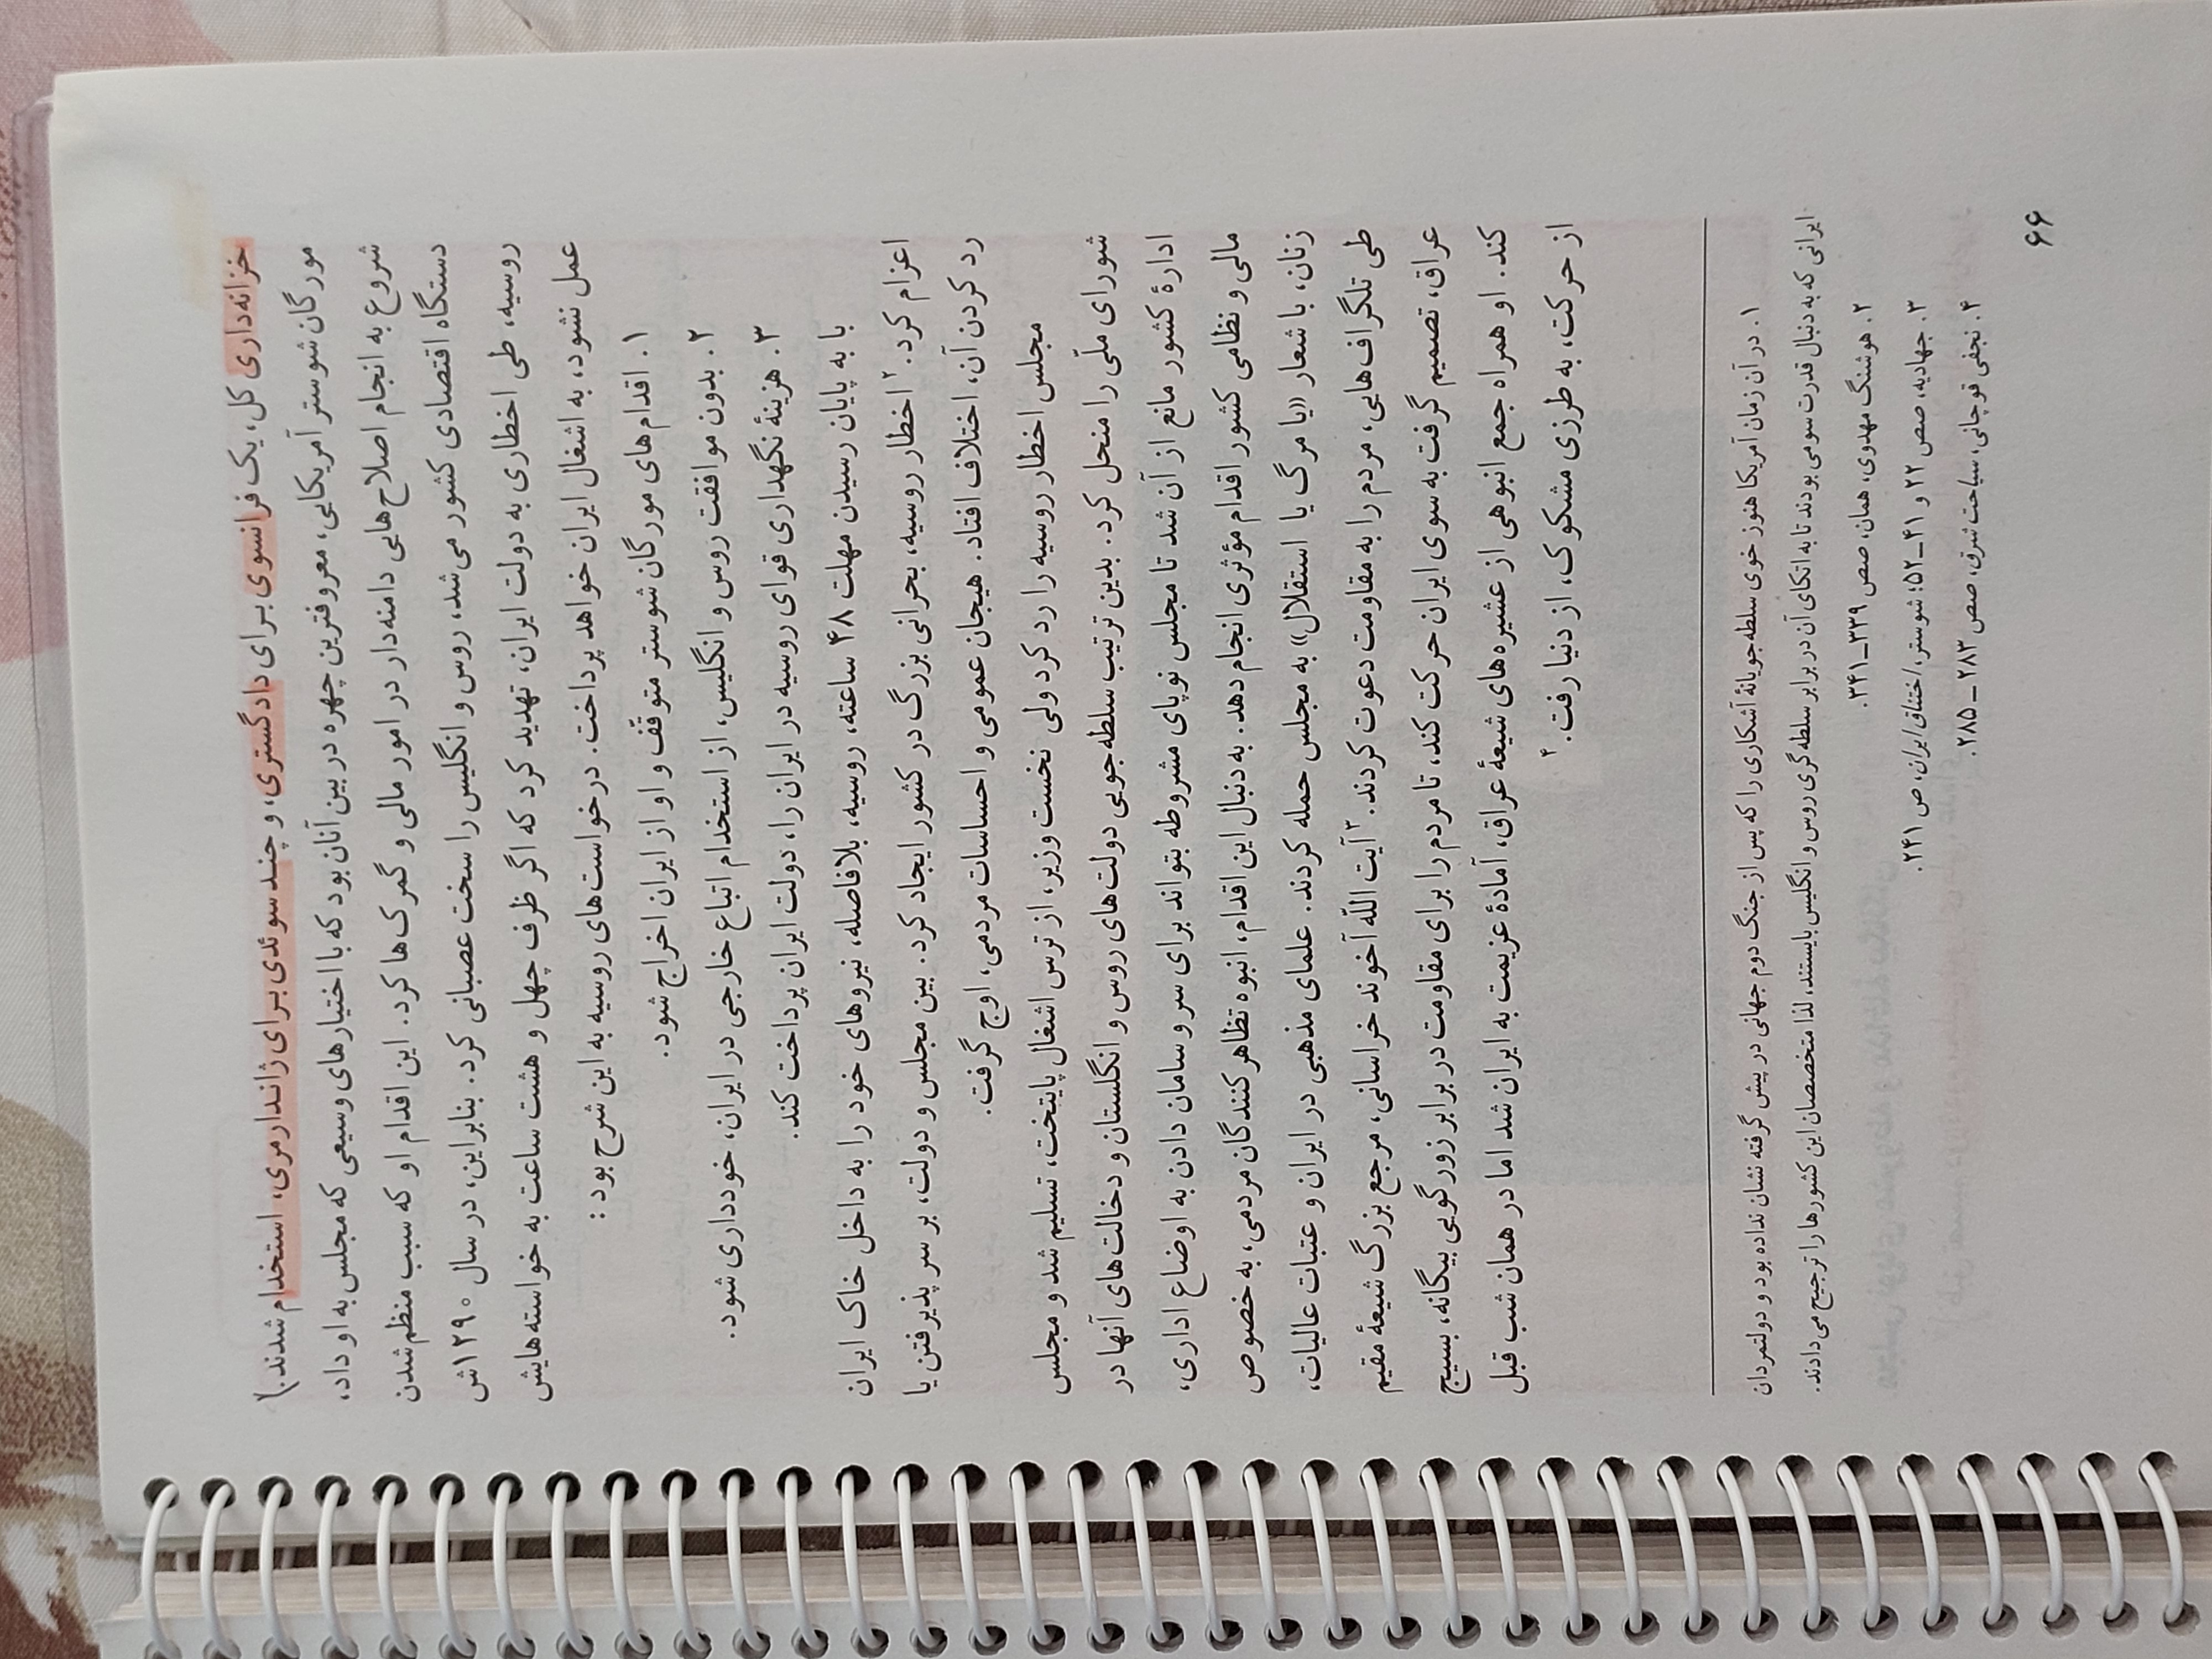 خزانه‌داری کل، یک فرانسوی برای دادگستری، و چند سوئدی برای ژاندارمری، استخدام شدند.۱
مورگان شوستر آمریکایی، معروفترین چهره در بین آنان بود که با اختیارهای وسیعی که مجلس به او داد،
شروع به انجام اصلاح‌هایی دامنه‌دار در امور مالی و گمرک‌ها کرد. این اقدام او که سبب منظم‌شدن
دستگاه اقتصادی کشور می‌شد، روس و انگلیس را سخت عصبانی کرد. بنابراین، در سال ۱۲۹۰ش
روسیه، طی اخطاری به دولت ایران، تهدید کرد که اگر ظرف چهل و هشت ساعت به خواسته‌هایش
عمل نشود، به اشغال ایران خواهد پرداخت. درخواست‌های روسیه به این شرح بود :
۱. اقدام‌های مورگان شوستر متوقّف و او از ایران اخراج شود.
۲. بدون موافقت روس و انگلیس، از استخدام اتباع خارجی در ایران، خودداری شود.
۳. هزینهٔ نگهداری قوای روسیه در ایران را، دولت ایران پرداخت کند.
با به پایان رسیدن مهلت ۴۸ ساعته، روسیه، بلافاصله، نیروهای خود را به داخل خاک ایران
اعزام کرد.۲ اخطار روسیه، بحرانی بزرگ در کشور ایجاد کرد. بین مجلس و دولت، بر سر پذیرفتن یا
رد کردن آن، اختلاف افتاد. هیجان عمومی و احساسات مردمی، اوج گرفت.
مجلس اخطار روسیه را رد کرد ولی نخست وزیر، از ترس اشغال پایتخت، تسلیم شد و مجلس
شورای ملّی را منحل کرد. بدین ترتیب سلطه‌جویی دولت‌های روس و انگلستان و دخالت‌های آنها در
ادارهٔ کشور مانع از آن شد تا مجلس نوپای مشروطه بتواند برای سر و سامان دادن به اوضاع اداری،
مالی و نظامی کشور اقدام مؤثری انجام دهد. به دنبال این اقدام، انبوه تظاهرکنندگان مردمی، به خصوص
زنان، با شعار «یا مرگ یا استقلال» به مجلس حمله کردند. علمای مذهبی در ایران و عتبات عالیات،
طی تلگراف‌هایی، مردم را به مقاومت دعوت کردند.۳ آیت اللّه آخوند خراسانی، مرجع بزرگ شیعهٔ مقیم
عراق، تصمیم گرفت به سوی ایران حرکت کند، تا مردم را برای مقاومت در برابر زورگویی بیگانه، بسیج
کند. او همراه جمع انبوهی از عشیره‌های شیعهٔ عراق، آمادهٔ عزیمت به ایران شد اما در همان شب قبل
از حرکت، به طرزی مشکوک، از دنیا رفت.۴
۱. در آن زمان آمریکا هنوز خوی سلطه‌جویانهٔ آشکاری را که پس از جنگ دوم جهانی در پیش گرفته نشان نداده بود و دولتمردان
ایرانی که به دنبال قدرت سومی بودند تا به اتکای آن در برابر سلطه‌گری روس و انگلیس بایستند، لذا متخصصان این کشورها را ترجیح می‌دادند.
۲. هوشنگ مهدوی، همان، صص ۳۳۹ــ۳۴۱.
۳. جهادیه، صص ۲۲ و ۴۱ــ۵۲؛ شوستر، اختناق ایران، ص ۲۴۱.
۴. نجفی قوچانی، سیاحت شرق، صص ۲۸۳ ــ ۲۸۵.
۶۶